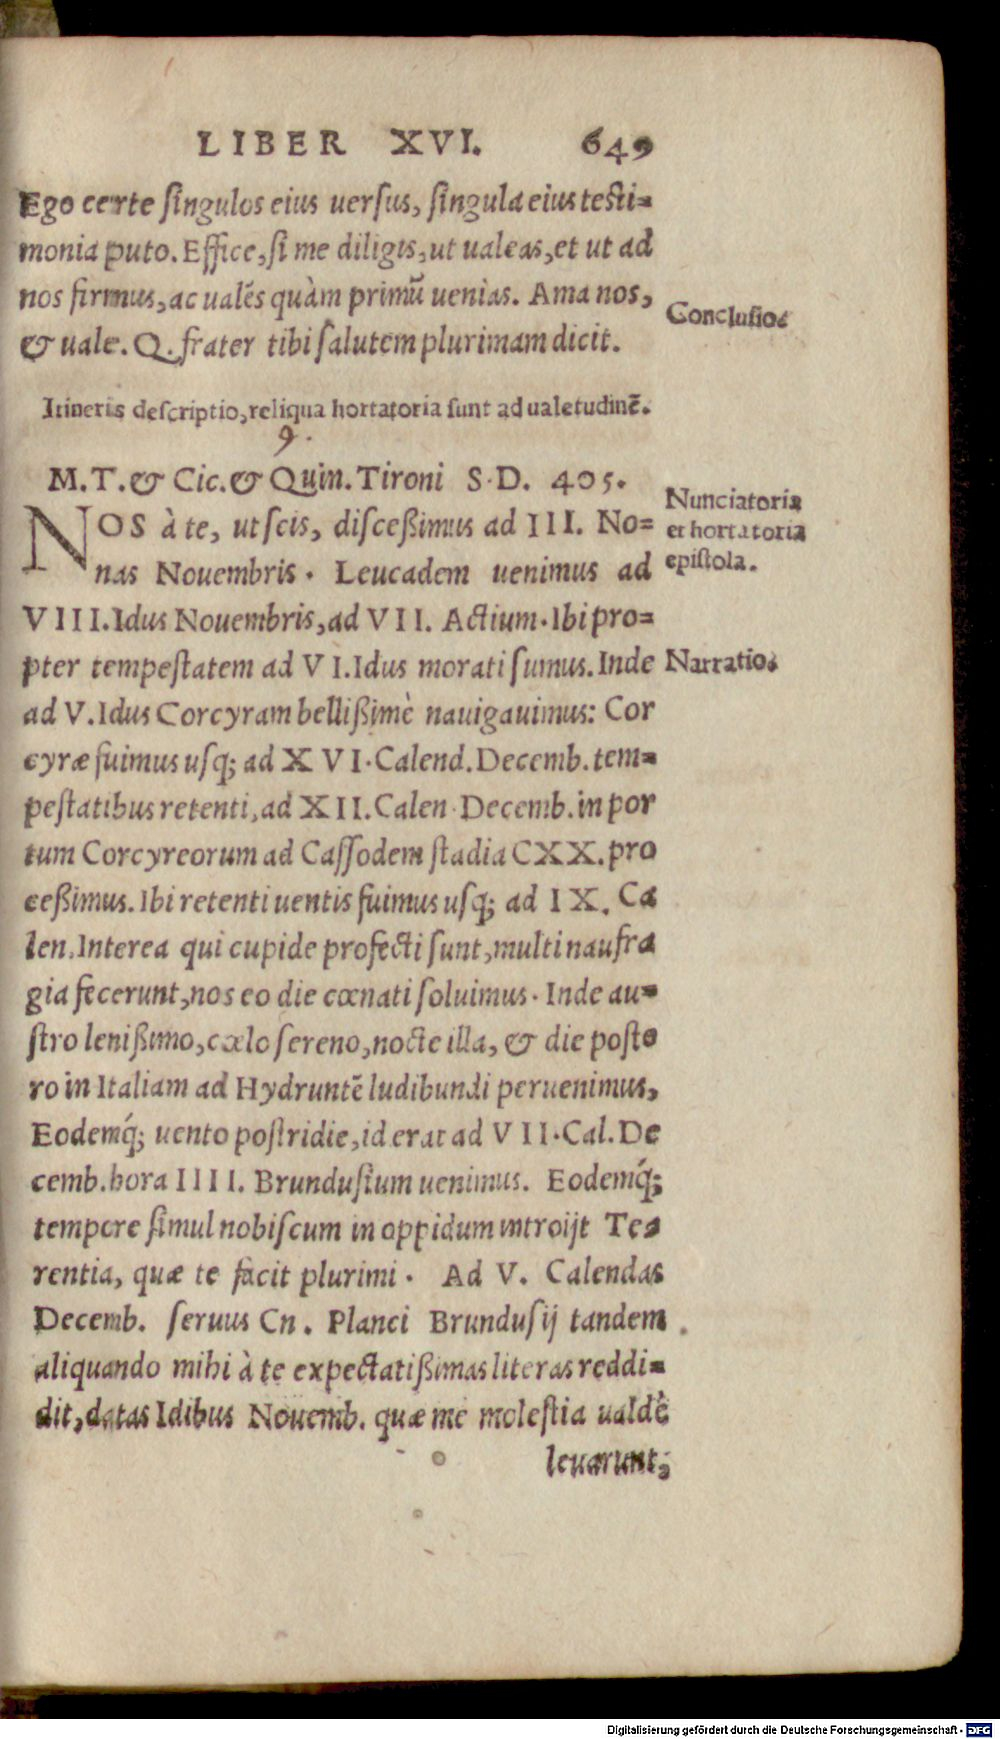 LIBER XVI. 649
Ego certe singulos eius uersus, singula eius testi=
monia puto. Effice, si me diligis, ut ualeas, et ut ad
nos firmus, ac ualẽs quàm primũ uenias. Ama nos,
& uale. Q. frater tibi salutem plurimam dicit.
Conclusio.
Itineris descriptio, reliqua hortatoria sunt ad ualetudinẽ.
9.
M. T. & Cic. & Quin. Tironi S. D. 405.
NOS à te, ut scis, disceßimus ad III. No=
nas Nouembris. Leucadem uenimus ad
VIII. Idus Nouembris, ad VII. Actium. Ibi pro=
pter tempestatem ad VI. Idus morati sumus. Inde
ad V. Idus Corcyram bellißimè nauigauimus: Cor
cyræ fuimus usq; ad XVI. Calend. Decemb. tem=
pestatibus retenti, ad XII. Calen. Decemb. in por
tum Corcyreorum ad Cassodem stadia CXX. pro
ceßimus. Ibi retenti uentis fuimus usq; ad IX. Ca
len. Interea qui cupide profecti sunt, multi naufra
gia fecerunt, nos eo die cœnati soluimus. Inde au=
stro lenißimo, cœlo sereno, nocte illa, & die poste
ro in Italiam ad Hydruntẽ ludibundi peruenimus,
Eodemq́; uento postridie, id erat ad VII. Cal. De
cemb. hora IIII. Brundusium uenimus. Eodemq́;
tempore simul nobiscum in oppidum introijt Te=
rentia, quæ te facit plurimi. Ad V. Calendas
Decemb. seruus Cn. Planci Brundusij tandem
aliquando mihi à te expectatißimas literas reddi=
dit, datas Idibus Nouemb. quæ me molestia ualdè
leuarunt,
Nunciatoria
et hortatoria
epistola.
Narratio.
Digitalisierung gefördert durch die Deutsche Forschungsgemeinschaft - DFG